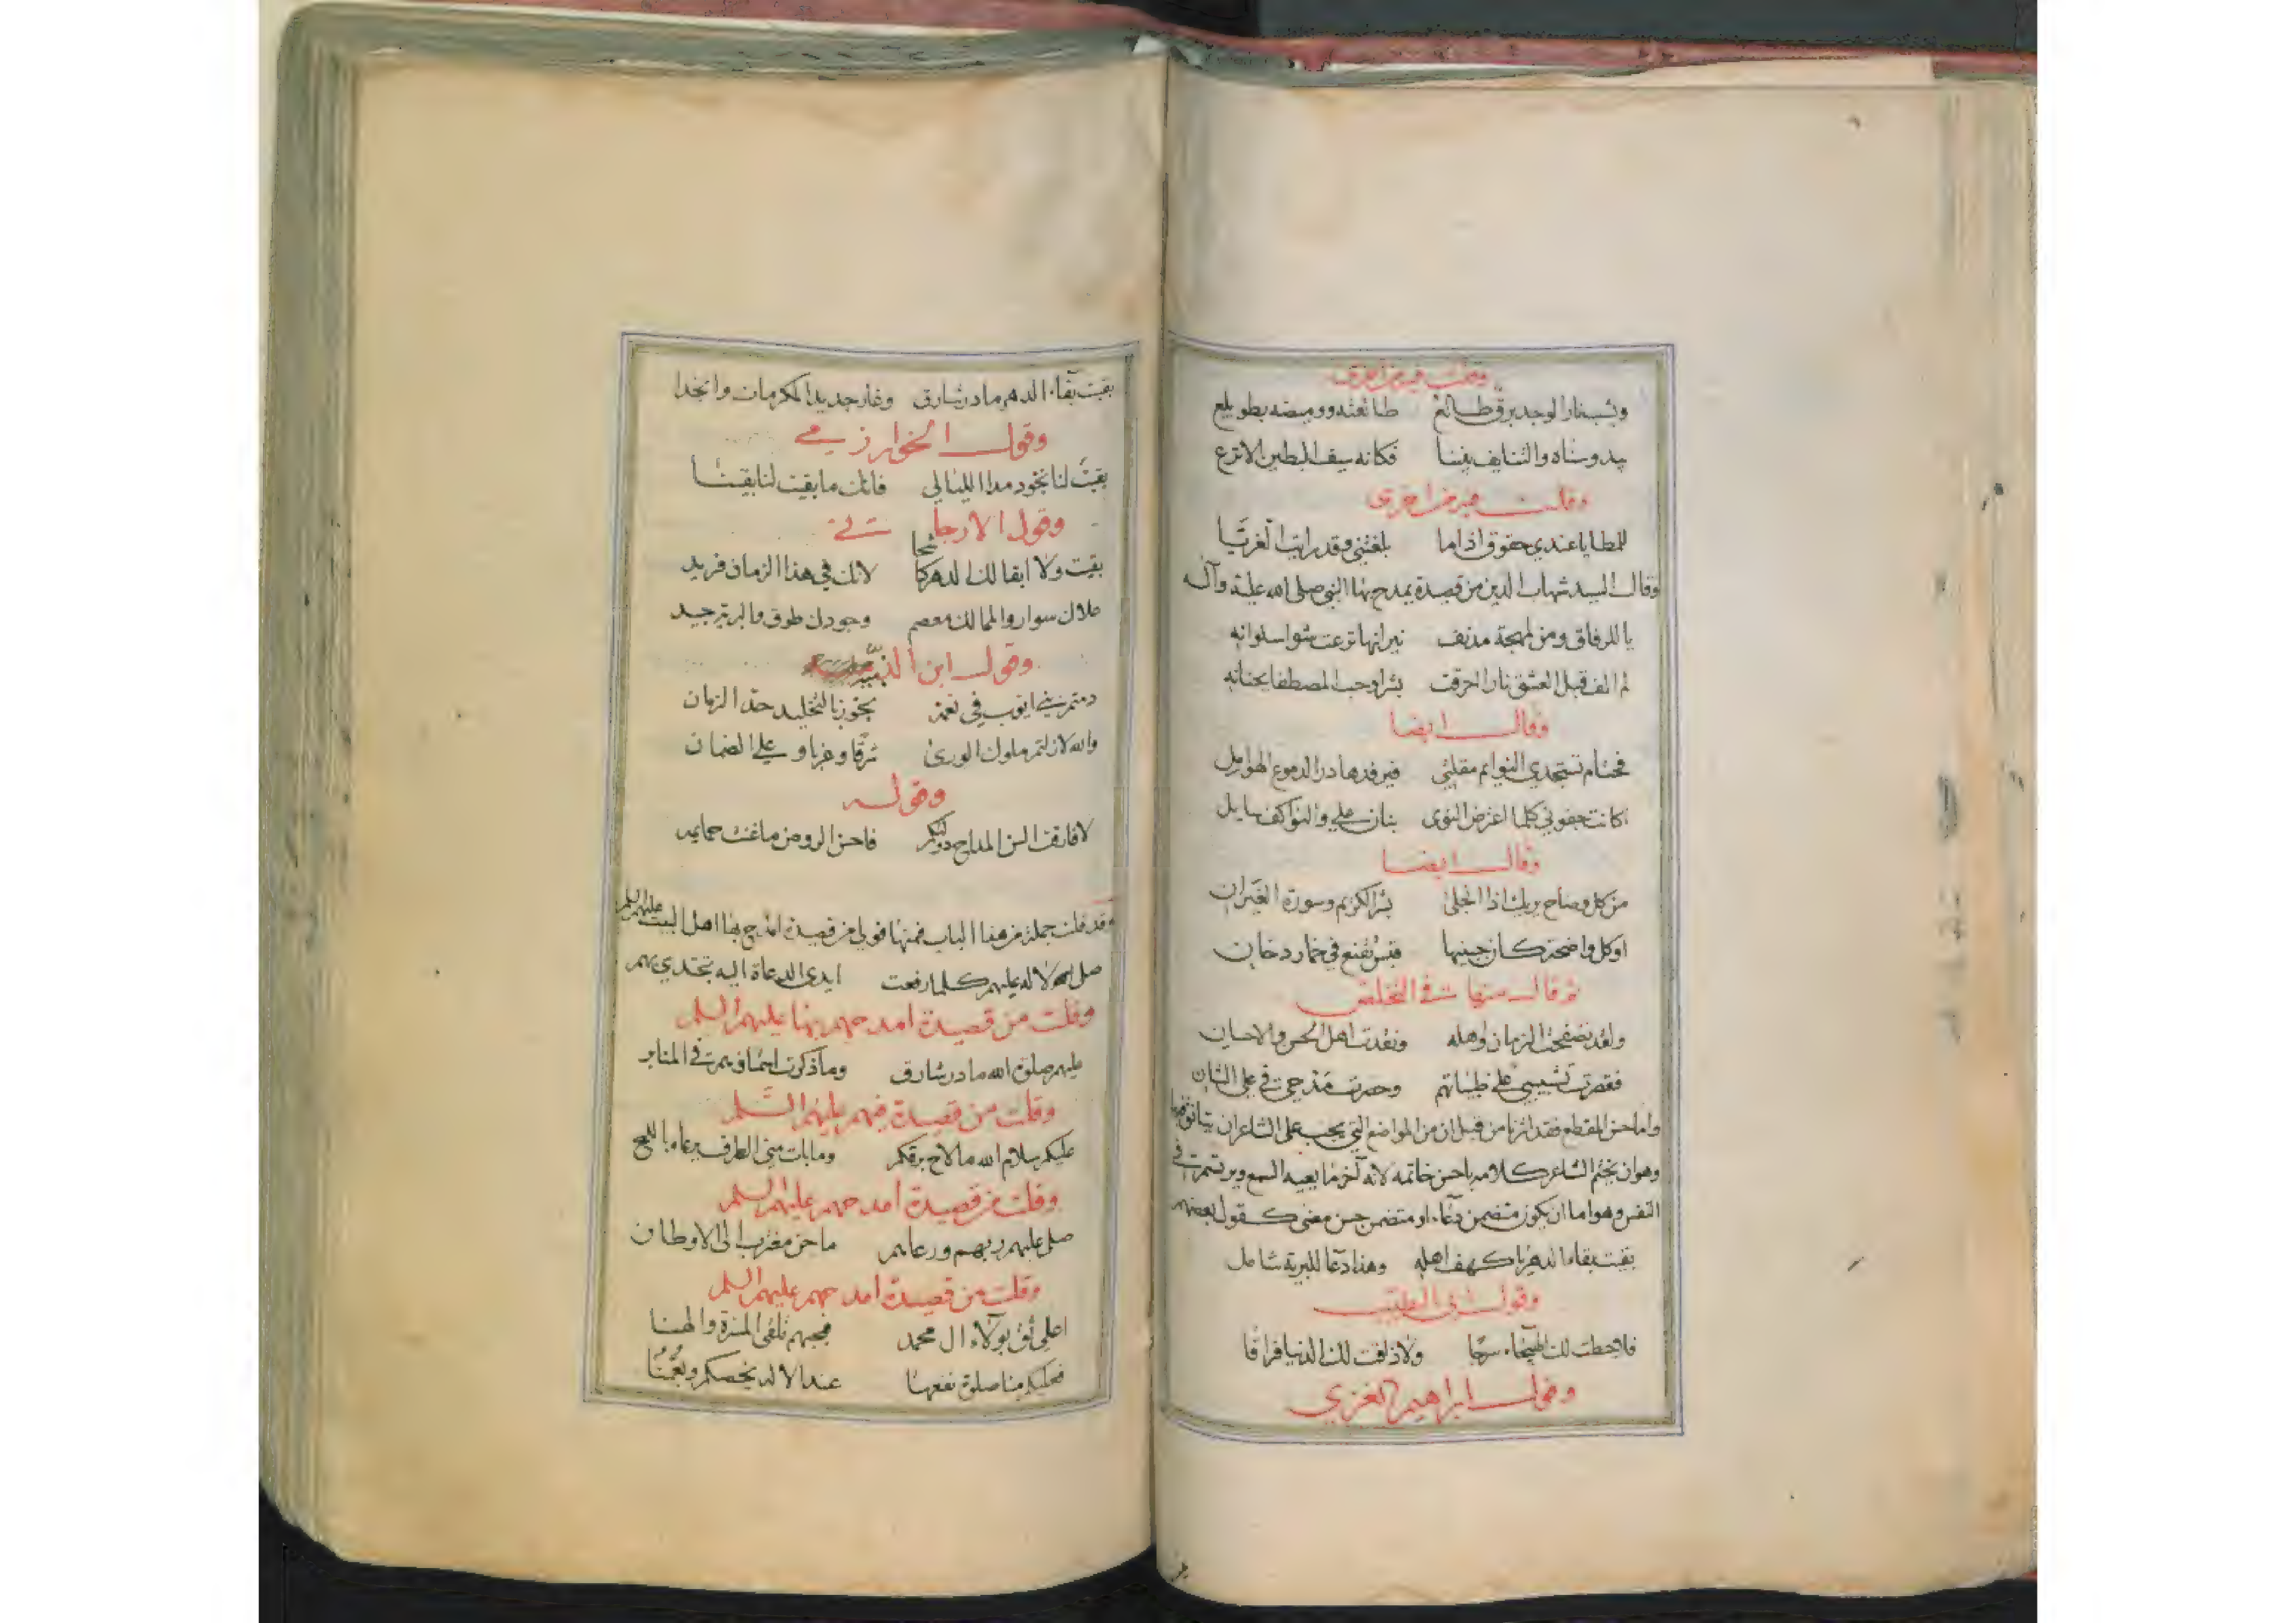 وقلت من اخرى
وشب نار الوجد برق طالع طالعته ووميضه بطويلع
يبدو سناه والتنايف بيننا فكانه سيف البطين الانزع
وقلت من اخرى
للمطايا عندي حقوق اذا ما بلغتني وقد رايت الغريا
وقال السيد شهاب الدين من قصيدة يمدح بها النبي صلى الله عليه وآله
يا للرفاق ومن لمهجة مدنف نيرانها نزعت شوا سلوانه
لم الف قبل العشق نارا احرقت بشرا وحب المصطفا بجنانه
وقال ايضا
فحتام تستجدي النوايم مقلتي فيرفدها در الدموع الهوامل
اكانت جفوني كلما اعترض النوى بنان علي والنوا كف سايل
وقال ايضا
من كل وضاح يريك اذا انجلى بشر الكريم وسورة الغيران
او كل واضحة كان جبينها قبس تقنع في خمار دخان
ثم قال منها في التخلص
ولقد تصفحت الزمان واهله ونقدت اهل الحسن والاحسان
فقصرت تشبيبي على ظبياتهم وحصرت مدحي في علي الشان
واما حسن المقطع فقد اشرنا من قبل ان من المواضع التي يجب على الشاعر ان يتانق فيها
وهو ان يختم الشاعر كلامه باحسن خاتمه لانه آخر ما يعيه السمع ويرتسم في
النفس وهو اما ان يكون متضمن دعاء او متضمن حسن معنى كقول بعضهم
بقيت بقاء الدهر يا كهف اهله وهذا دعآ للبرية شامل
وقول ابي الطيب
فلا حطت لك الهيجاء سرجا ولا ذاقت لك الدنيا فراقا
وقول ابراهيم الغزي
بقيت بقآء الدهر ما در شارق وغار جديدا لمكرمات وانجدا
وقول الخوارزمي
بقيت لنا بجود مدا الليالي فانك ما بقيت لنا بقيتا
وقول الارجاني
بقيت ولا ابقا لك الدهر كاشحا لانك في هذا الزمان فريد
علاك سوار والممالك معصم وجودك طوق والبرية جيد
وقول ابن النبيه
دمتم بني ايوب في نعمة تجوز بالتخليد حد الزمان
والله لا زلتم ملوك الورى شرقا وغربا وعلي الضمان
وقوله
لا فارقت السن المداح دولتكم فاحسن الروض ما غنت حمايمه
وقد قلت جملة من هذا الباب فمنها قولي من قصيدة امدح بها اهل البيت عليهم السلم
صلى الاله عليهم كلما رفعت ايدى الدعاة اليه تجتدي بهم
وقلت من قصيدة امدحهم بها عليهم السلم
عليهم صلوة الله ما در شارق وما ذكرت اسماؤهم في المنابر
وقلت من قصيدة فيهم عليهم السلم
عليكم سلام الله ما لاح برقكم وما بات مني الطرف يرعاه باللمح
وقلت من قصيدة امدحهم عليهم السلم
صلى عليهم ربهم ورعاهم ما حن مغترب الى الاوطان
وقلت من قصيدة امدحهم عليهم السلم
اعلي ثق بولاء ال محمد فبحبهم تلقى المسرة والهنا
فعليكم منا صلوة نفعها عند الاله يخصكم ويعمنا